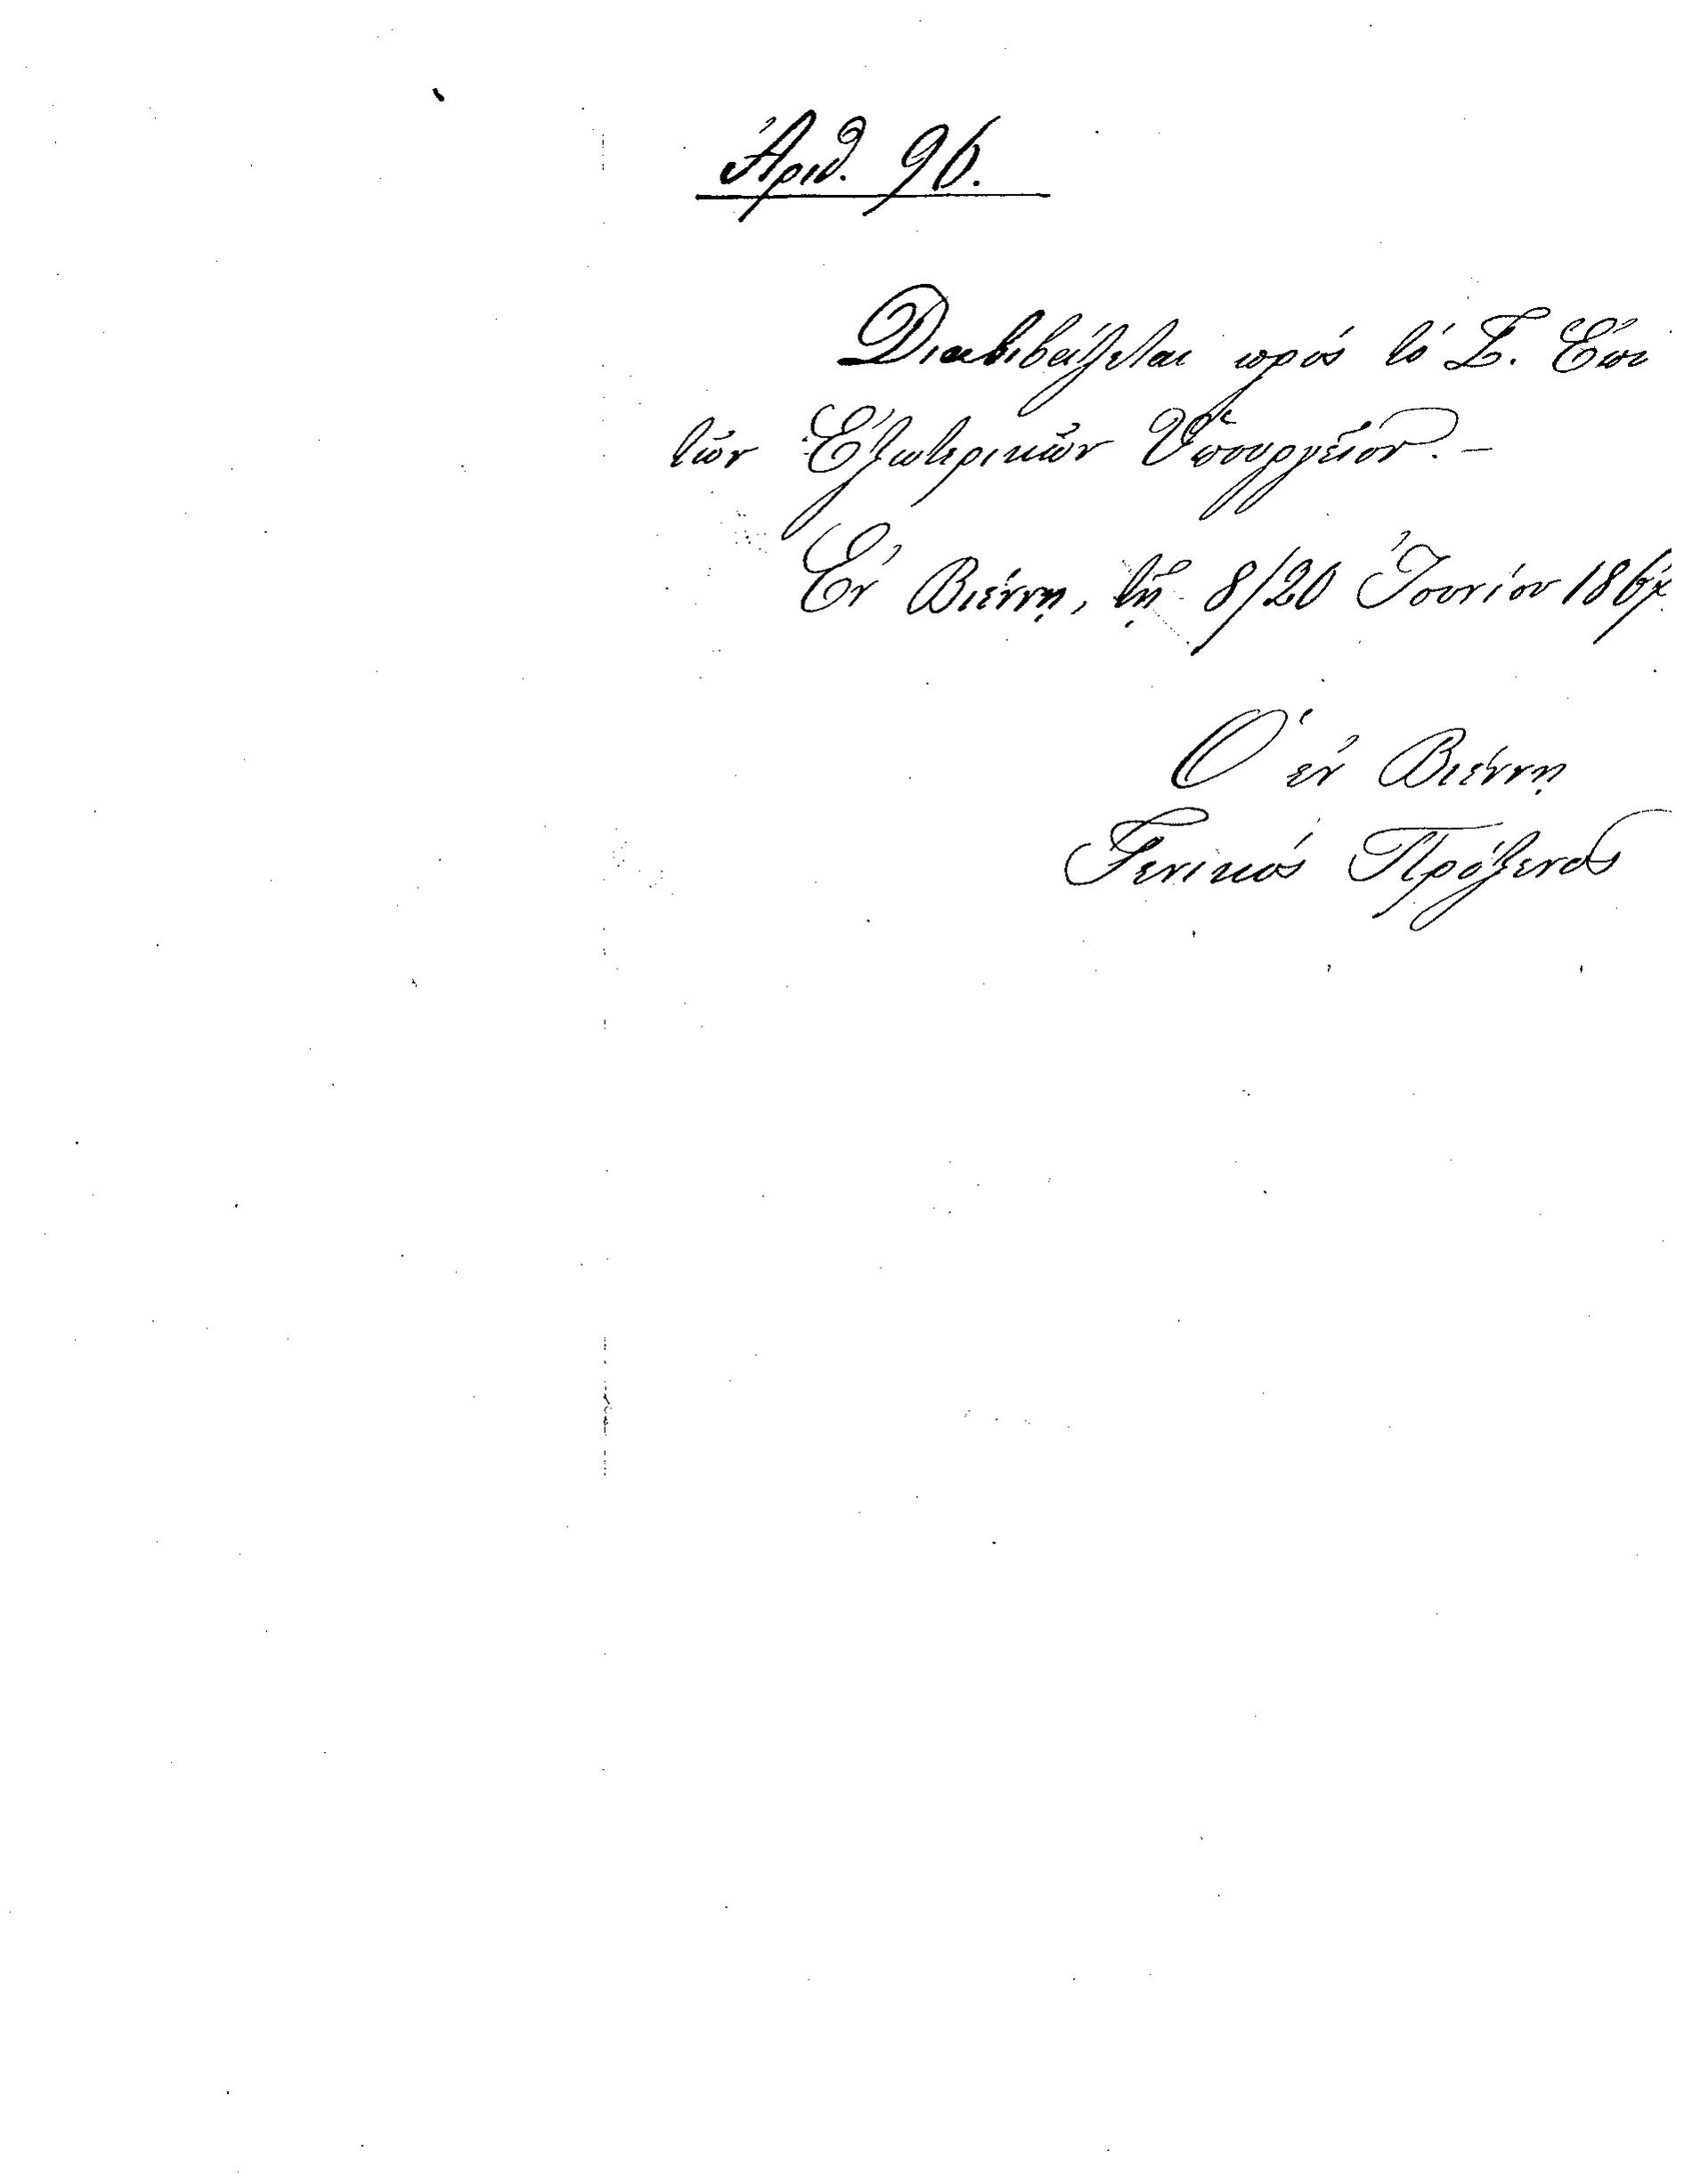 Ἀριθ. 96.
Διαβιβάζεται πρὸς τὸ Σ. Ἐπὶ
τῶν Ἐξωτερικῶν Ὑπουργεῖον. –
Ἐν Βιέννῃ, τῇ 8/20 Ἰουνίου
Ὁ ἐν Βιέννῃ
Γενικὸς Πρόξενος